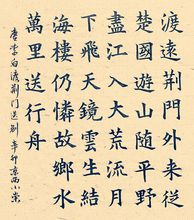 渡遠荆門外来從
楚國遊山随平野
盡江入大荒流月
下飛天鏡雲生結
海樓仍憐故鄉水
萬里送行舟
唐李白渡荆門送别 辛卯